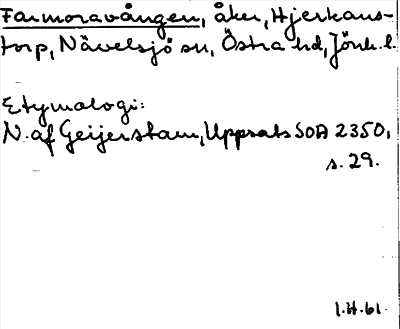 Farmoravången, åker, Hjerkans-
torp, Nävelsjö sn, Östra hd, Jönk. l.
Etymologi:
N. af Geijerstam, Uppsats SOA 2350,
s. 29.
1.H.61